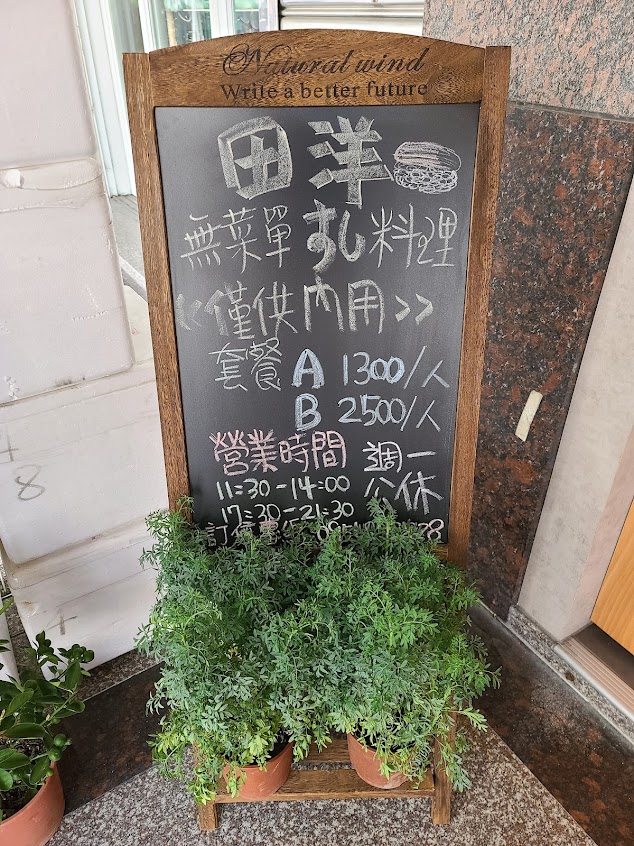 Natural wind
Write a better future
田洋
無菜單すし料理
<<僅供內用>>
套餐 A 1300/人
B 2500/人
營業時間 週一
11:30-14:00 公休
17:30-21:30
8